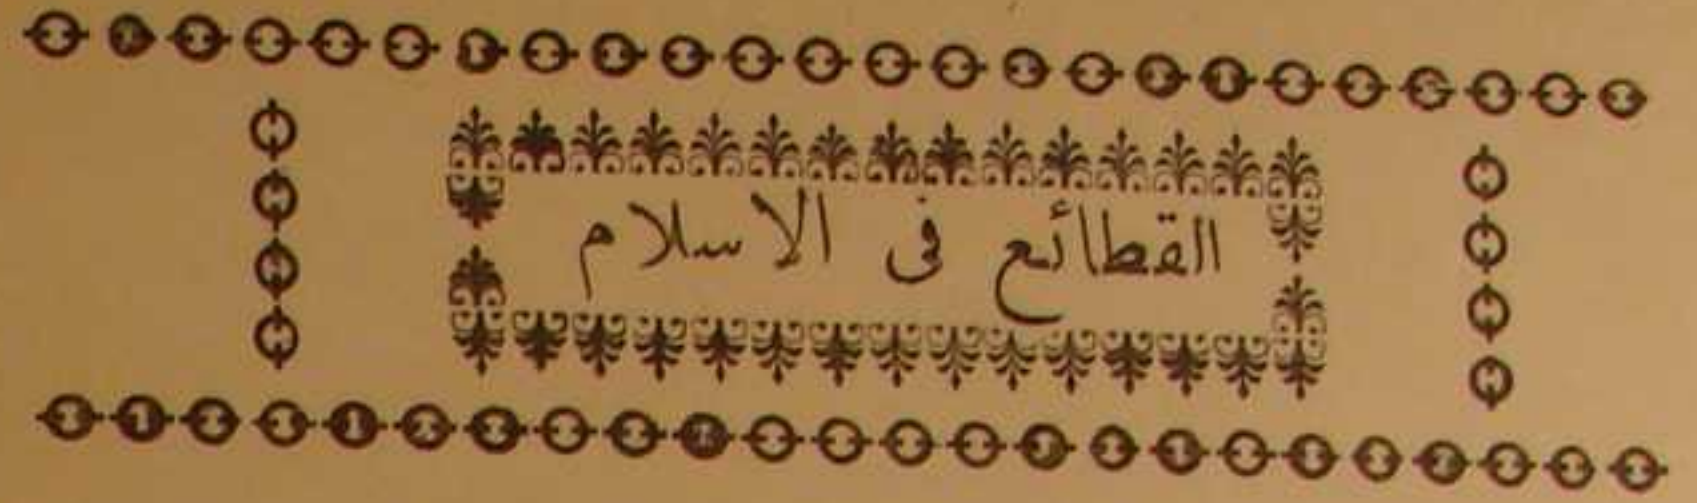 القطائع فى الاسلام